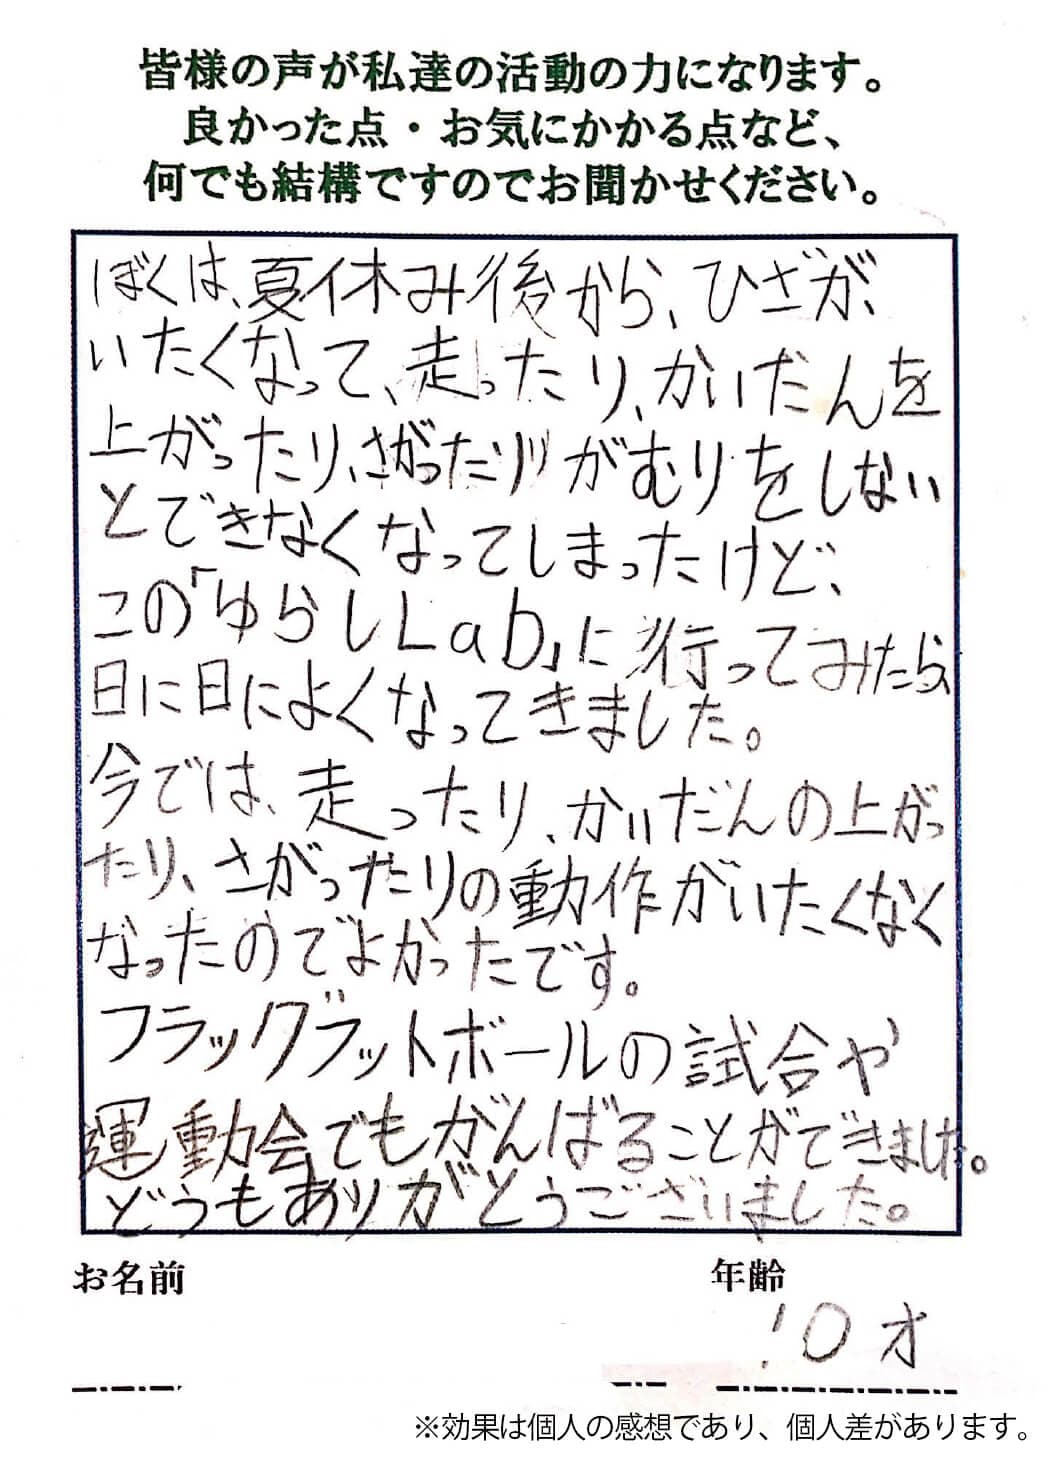 皆様の声が私達の活動の力になります。
良かった点・お気にかかる点など、
何でも結構ですのでお聞かせください。
ぼくは、夏休み後から、ひざが、
いたくなって、走ったり、かいだんを
上がったり、さがったりがむりをしない
とできなくなってしまったけど、
この「ゆらしLab」に行ってみたら、
日に日によくなってきました。
今では、走ったり、かいだんの上がっ
たり、さがったりの動作がいたくなく
なったのでよかったです。
フラッグフットボールの試合や
運動会でもがんばることができました。
どうもありがとうございました。
お名前
年齢
10才
※効果は個人の感想であり、個人差があります。